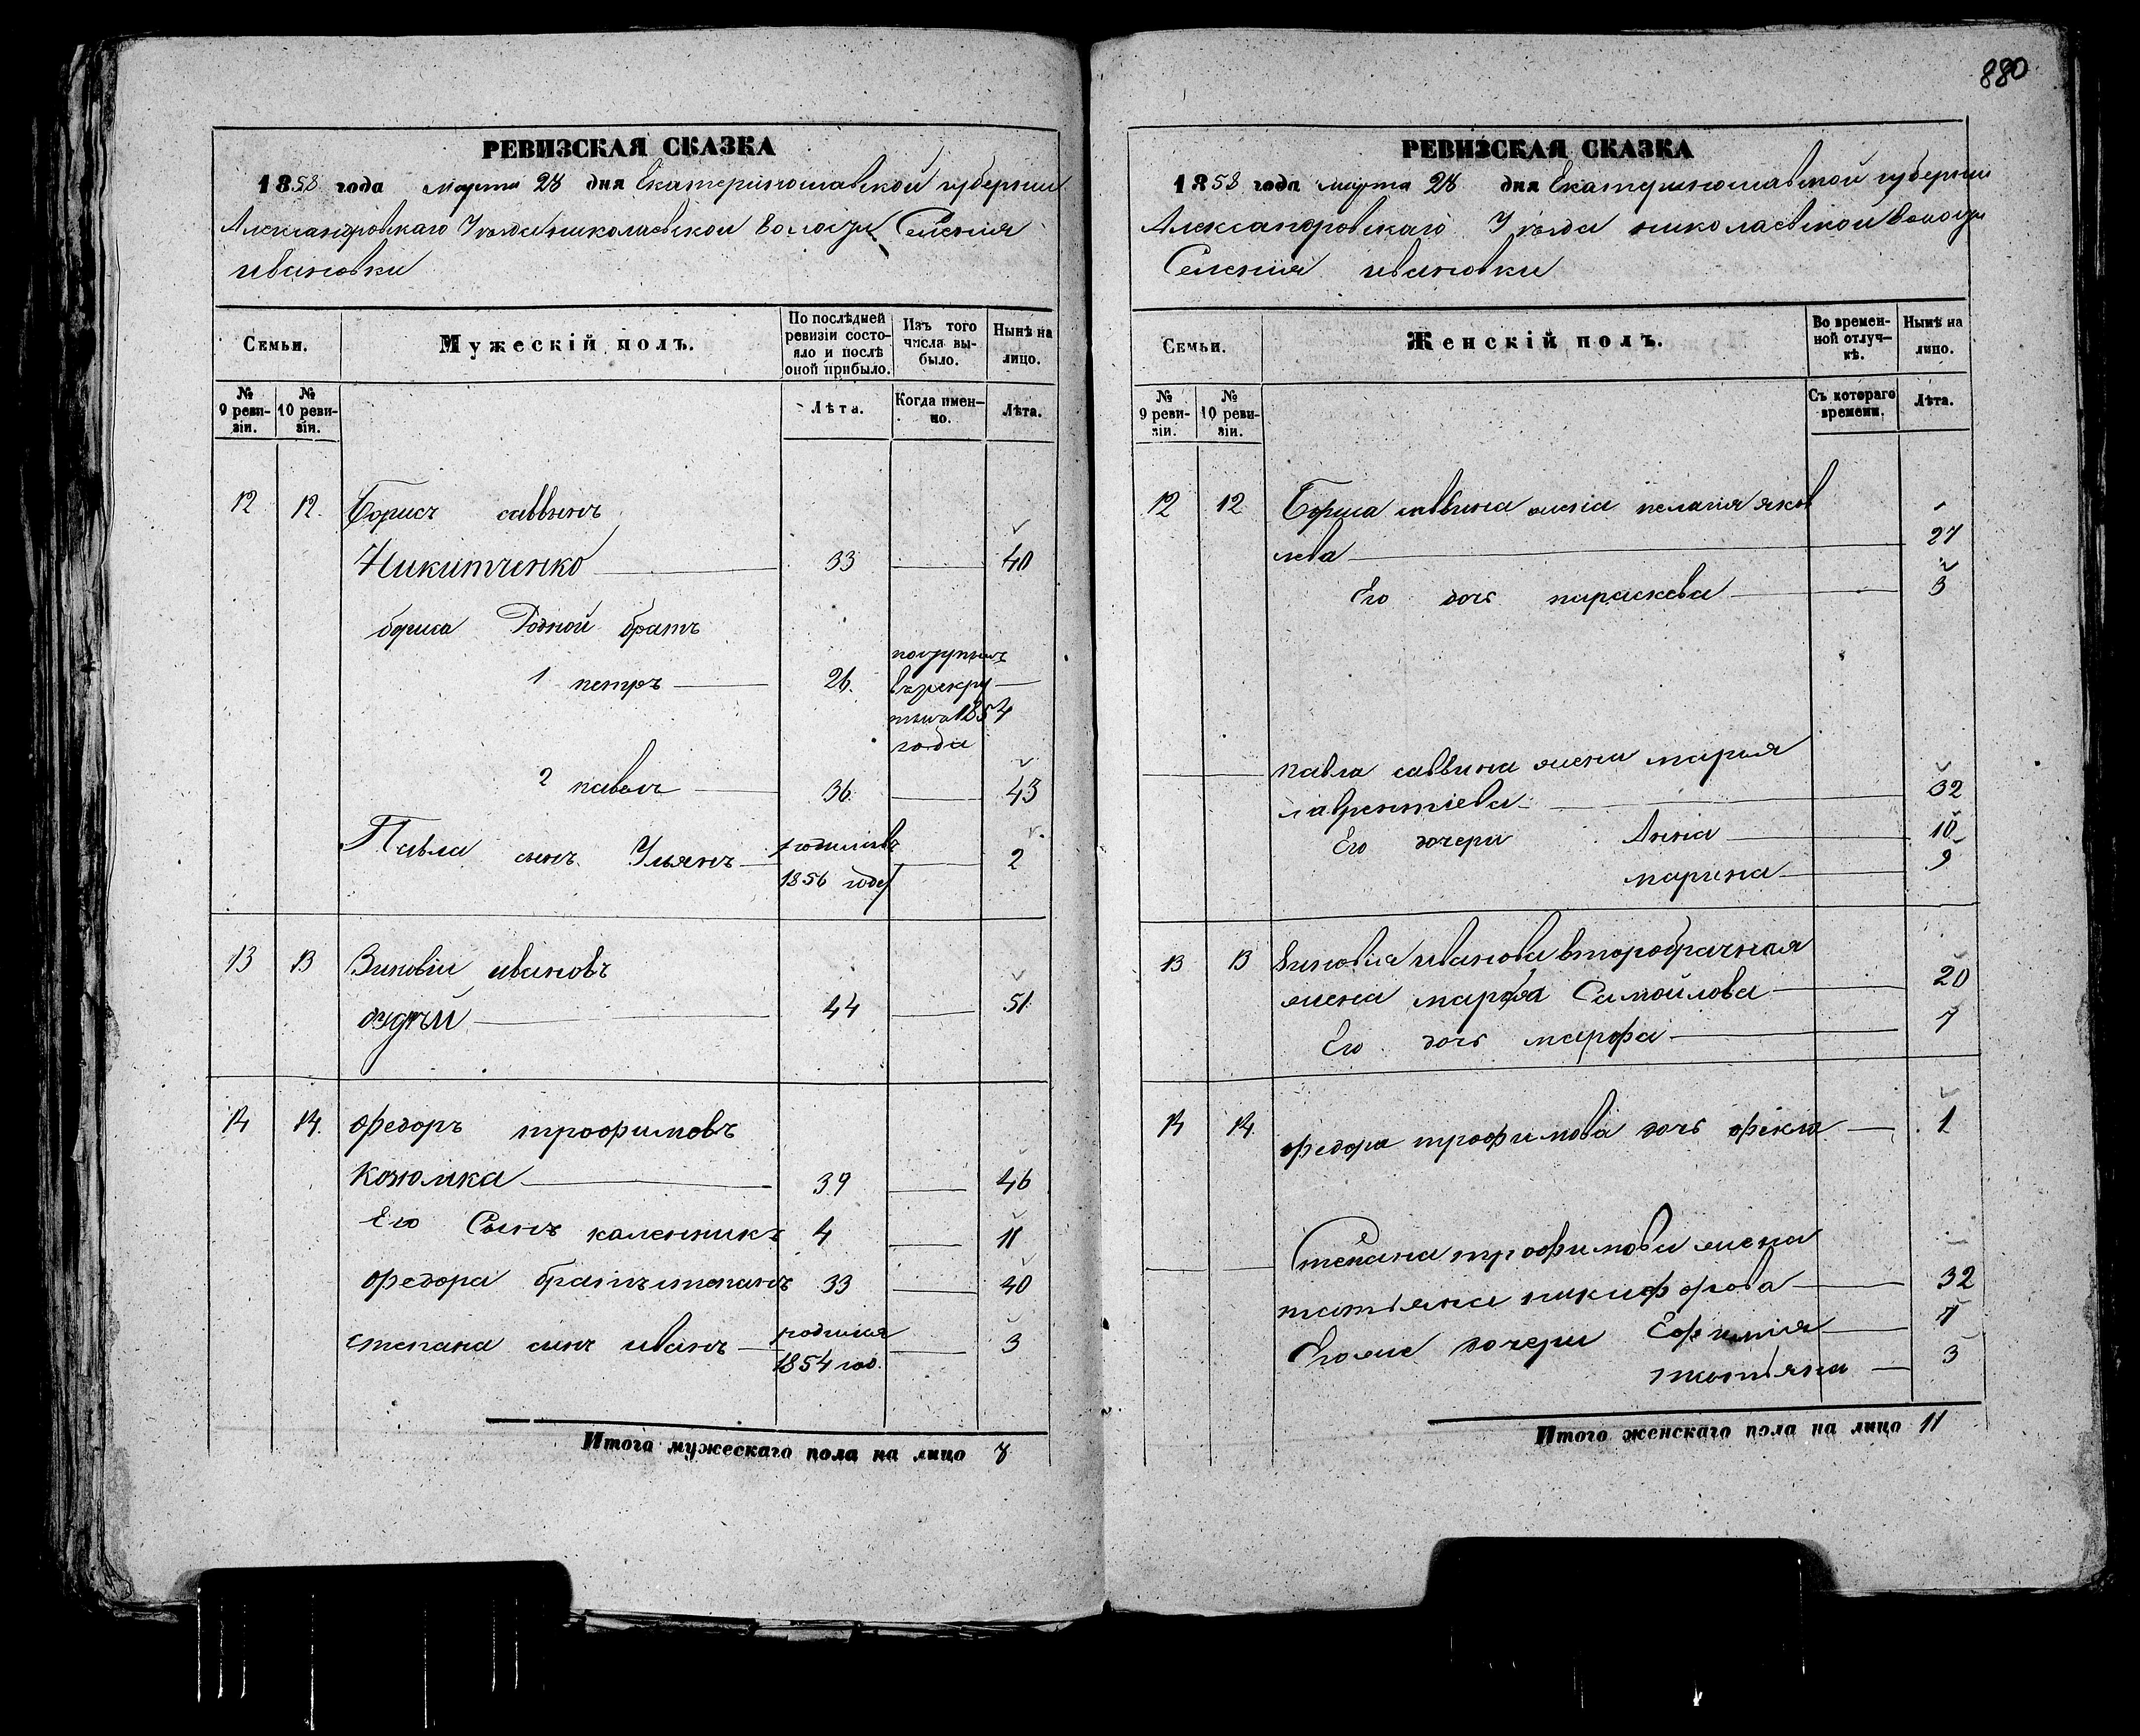 880
РЕВИЗСКАЯ СКАЗКА
1858 года марта 28 дня Екатеринославской губернии
Александровскаго Уезда николаевской волости Селения
ивановки
Семьи.
Мужескій полъ.
По послѣдней ревизіи состояло и послѣ оной прибыло.
Изъ того числа выбыло.
Нынѣ на лицо.
№ 9 ревизіи.
№ 10 ревизіи.
Лѣта.
Когда именно.
Лѣта.
12 12. Борисъ саввинъ
Никитченко 33 40
бориса Родной братъ
1 петръ 26. поступилъ
в рекру
1854
года
2 павелъ 36 43
Павла сынъ Ульянъ родился в 2
1856 году
13 13 Зиновіи ивановъ
44 51
14 14. федоръ трофимовъ
39 46
Его Сынъ каленикъ 4 11
федора братъ степанъ 33 40
степана сынъ иванъ родился 3
1854 год.
Итого мужескаго пола на лицо 7
РЕВИЗСКАЯ СКАЗКА
1858 года марта 28 дня Екатеринославской губернии
Александровскаго Уезда николаевской волости
Селения ивановки
Семьи.
Женскій полъ.
Во временной отлучкѣ.
Нынѣ на лицо.
№ 9 ревизіи.
№ 10 ревизіи.
Съ котораго времени.
Лѣта.
12 12 Бориса саввина жена пелагия яков
лева 27
Его дочь параскева 3
павла саввина жена марья
лаврентіева 32
Его дочери Анна 10
марина 9
13 13 Зиновия иванова второбрачная
жена марфа Самойлова 20
Его дочь марфа 7
14 14 федора трофимова дочь фекла 1
Степана трофимова жена
татьяна никифорова 32
Егоже дочери Ефимия 7
татьяна 3
Итого женскаго пола на лицо 11